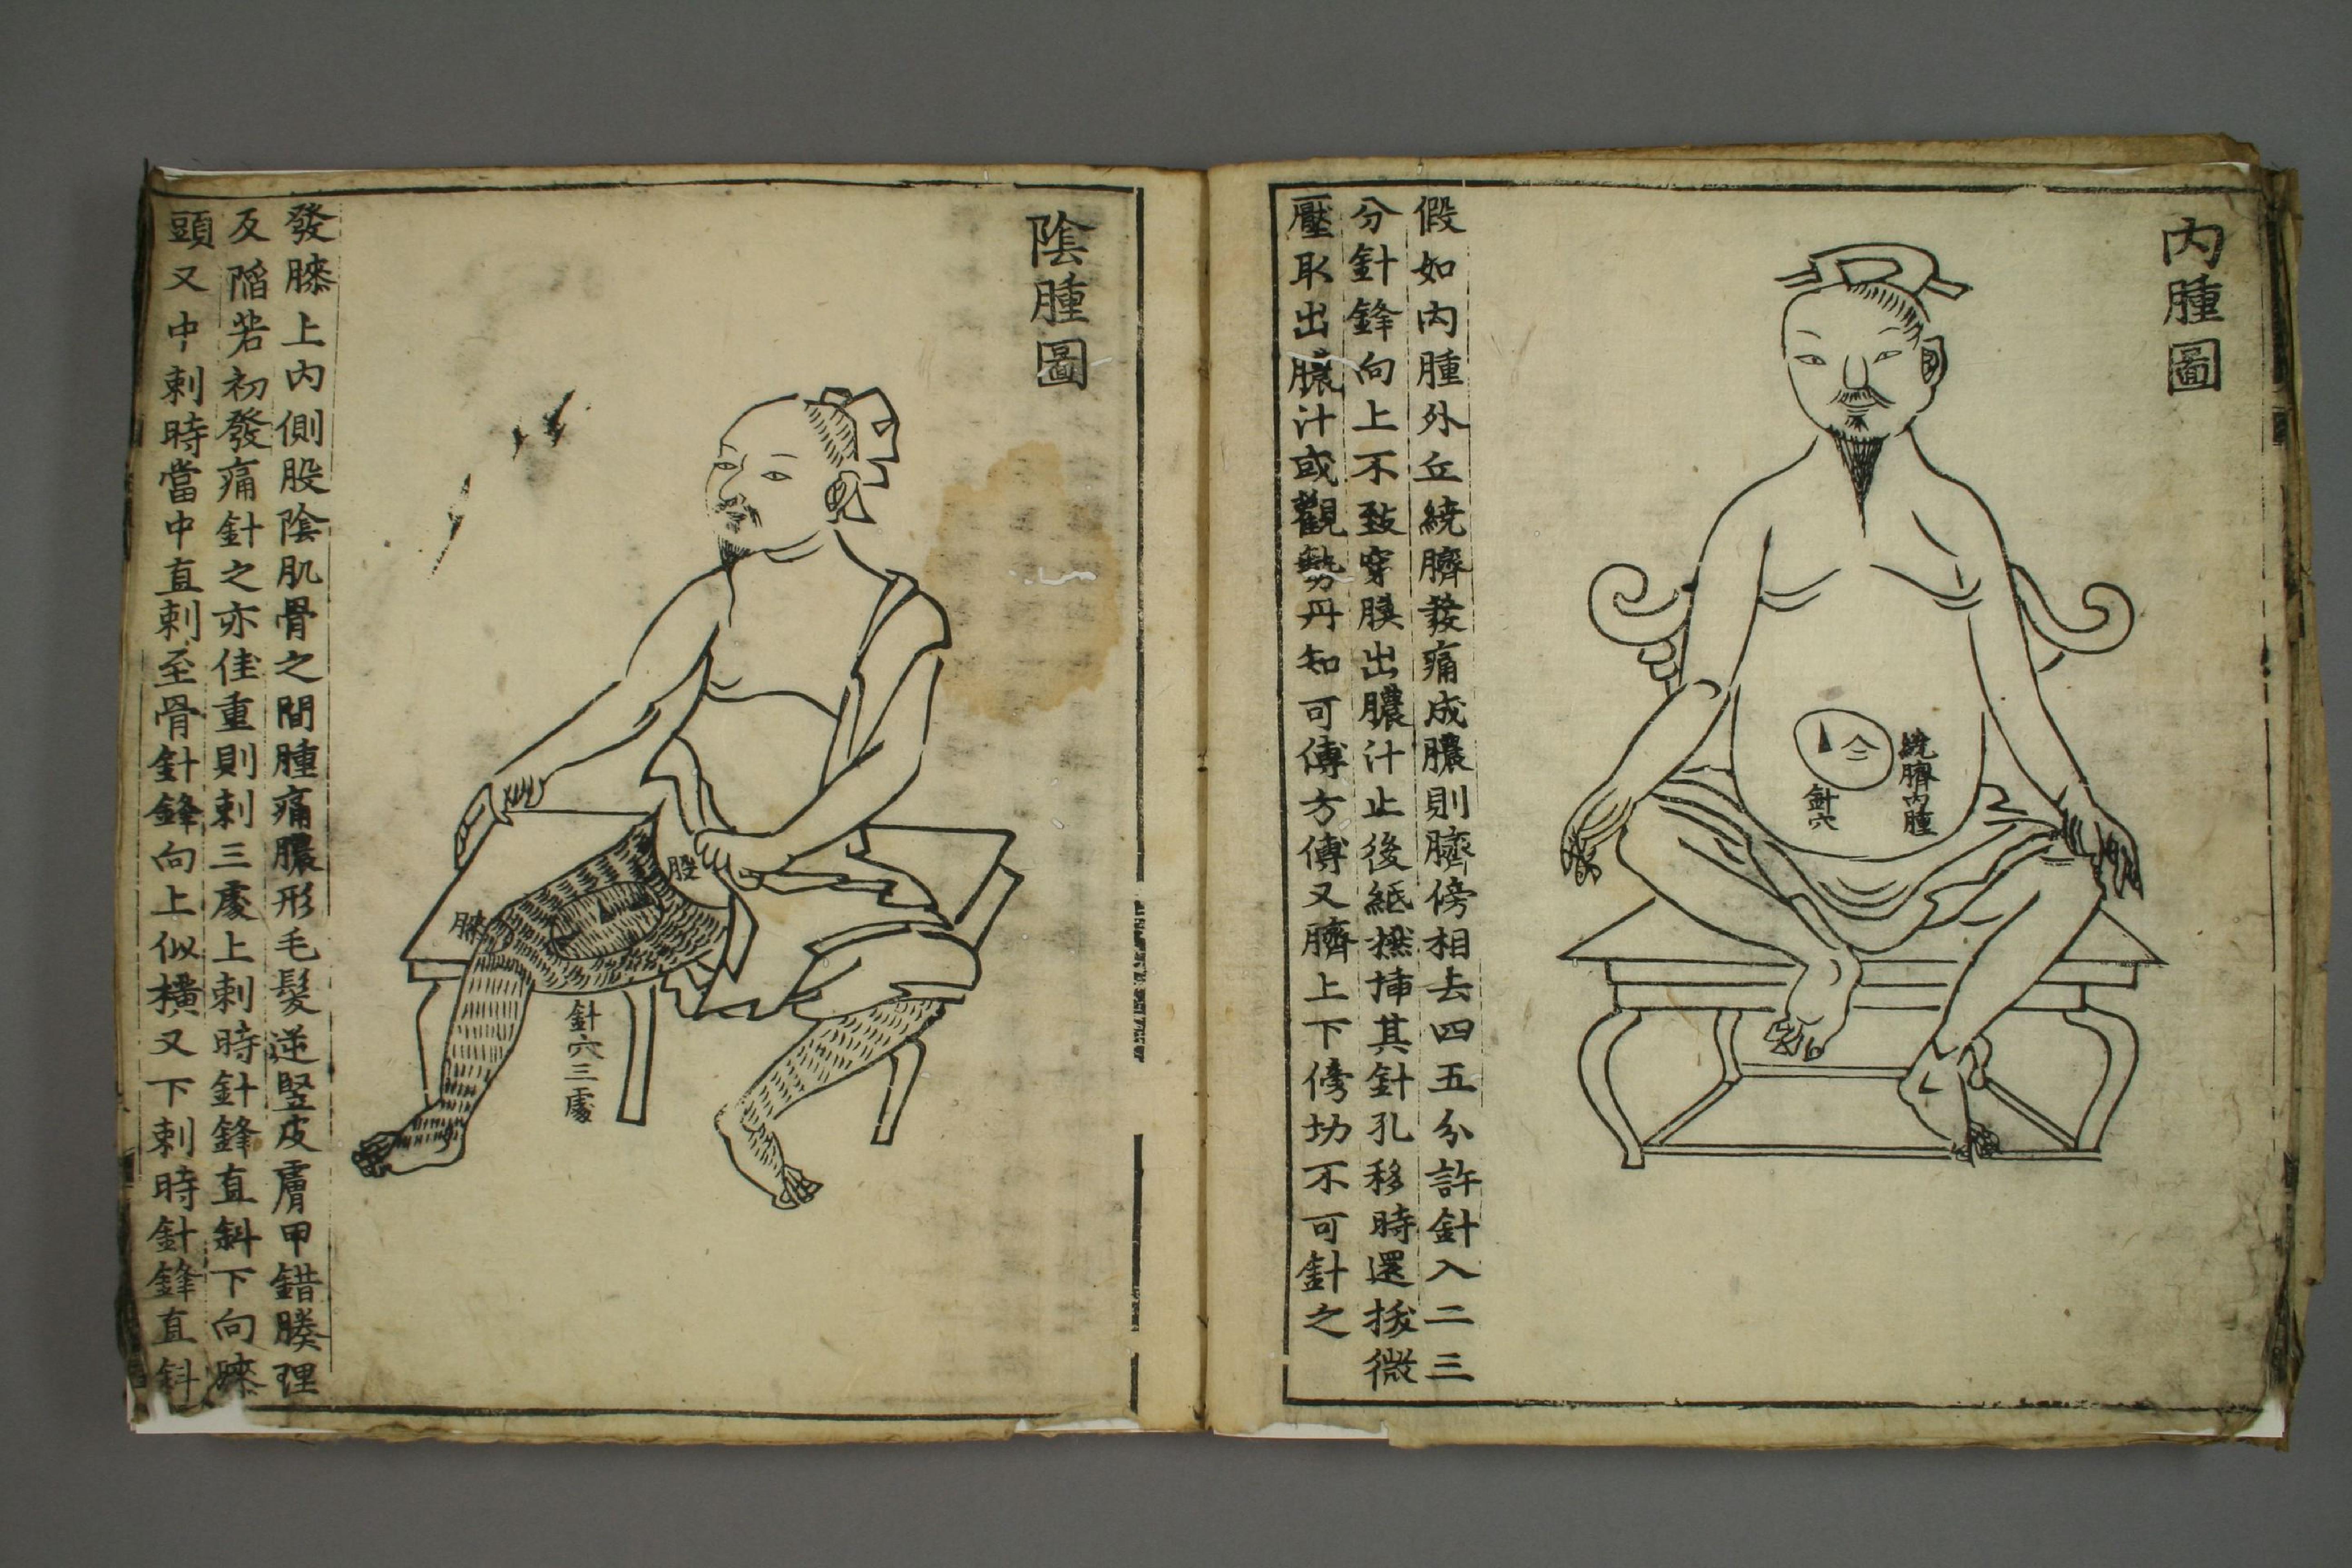 內腫圖
繞臍內腫
針穴
假如內腫外丘繞臍發痛成膿則臍傍相去四五分許針入二三
分針鋒向上不致穿膜出膿汁止後紙撚揷其針孔移時還拔微
壓取出膿汁或觀勢丹知可傅方傅又臍上下傍切不可針之
陰腫圖
股
膝
針穴三處
發膝上內側股陰肌骨之間腫痛膿形毛髮逆竪皮膚甲錯腠理
及陷若初發痛針之亦佳重則刺三處上刺時針鋒直斜下向膝
頭又中刺時當中直刺至骨針鋒向上似橫又下刺時針鋒直斜